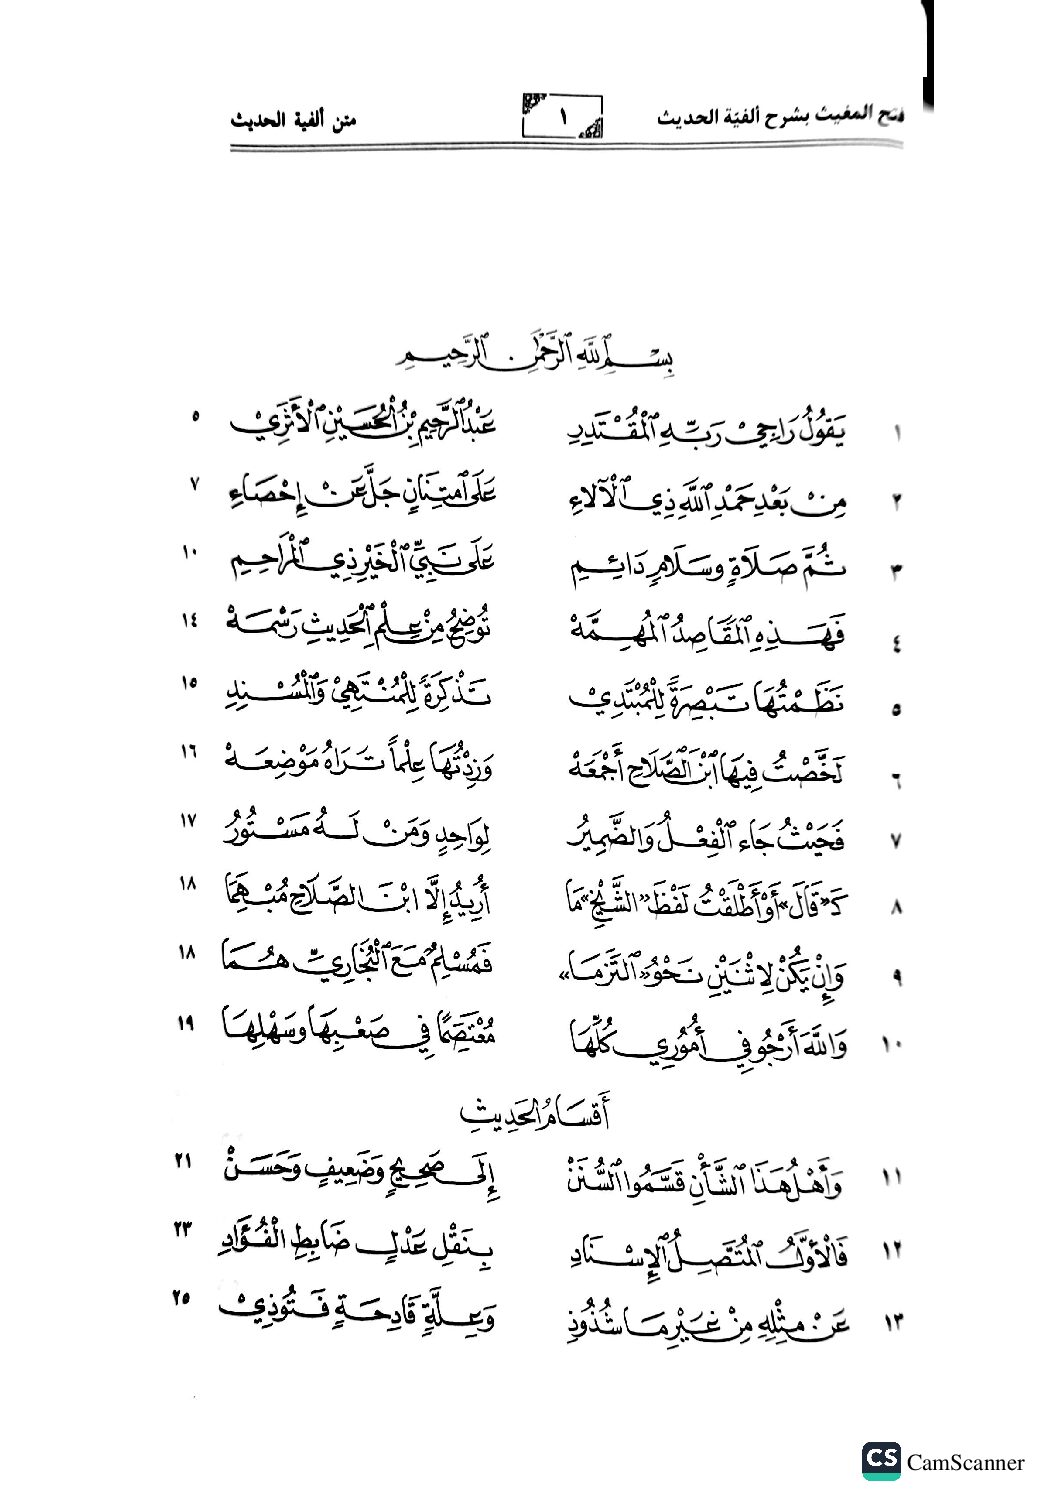 فتح المغيث بشرح ألفيّة الحديث ١ متن ألفية الحديث
بِسْمِ اللَّهِ الرَّحْمَٰنِ الرَّحِيمِ
١ يَقُولُ رَاجِيْ رَبِّهِ الْمُقْتَدِرِ عَبْدُ الرَّحِيْمِ بْنُ الْحُسَيْنِ الْأَثَرِيْ ٥
٢ مِنْ بَعْدِ حَمْدِ اللَّهِ ذِي الْآلَاءِ عَلَى امْتِنَانٍ جَلَّ عَنْ إِحْصَاءِ ٧
٣ ثُمَّ صَلَاةٍ وسَلَامٍ دَائِمِ عَلَى نَبِيِّ الْخَيْرِ ذِي الْمَرَاحِمِ ١٠
٤ فَهَذِهِ الْمَقَاصِدُ الْمُهِمَّهْ تُوْضِحُ مِنْ عِلْمِ الْحَدِيْثِ رَسْمَهْ ١٤
٥ نَظَمْتُهَا تَبْصِرَةً لِلْمُبْتَدِيْ تَذْكِرَةً لِلْمُنْتَهِيْ وَالْمُسْنِدِ ١٥
٦ لَخَّصْتُ فِيهَا ابْنَ الصَّلَاحِ أَجْمَعَهْ وَزِدْتُهَا عِلْماً تَرَاهُ مَوْضِعَهْ ١٦
٧ فَحَيْثُ جَاءَ الْفِعْلُ وَالضَّمِيرُ لِوَاحِدٍ وَمَنْ لَهُ مَسْتُورُ ١٧
٨ كَـ«قَالَ» أَوْ أَطْلَقْتُ لَفْظَ «الشَّيْخِ» مَا أُرِيدُ إِلَّا ابْنَ الصَّلَاحِ مُبْهِمَا ١٨
٩ وَإِنْ يَكُنْ لِاثْنَيْنِ نَحْوُ «الْتَزَمَا» فَمُسْلِمٌ مَعَ الْبُخَارِيِّ هُمَا ١٨
١٠ وَاللَّهَ أَرْجُو فِي أُمُوْرِي كُلِّهَا مُعْتَصَمًا فِي صَعْبِهَا وسَهْلِهَا ١٩
أَقْسَامُ الْحَدِيثِ
١١ وَأَهْلُ هَذَا الشَّأْنِ قَسَّمُوا السُّنَنْ إِلَى صَحِيْحٍ وَضَعِيفٍ وَحَسَنْ ٢١
١٢ فَالْأَوَّلُ الْمُتَّصِلُ الْإِسْنَادِ بِنَقْلِ عَدْلٍ ضَابِطِ الْفُؤَادِ ٢٣
١٣ عَنْ مِثْلِهِ مِنْ غَيْرِ مَا شُذُوْذِ وَعِلَّةٍ قَادِحَةٍ فَتُوْذِيْ ٢٥
CS CamScanner